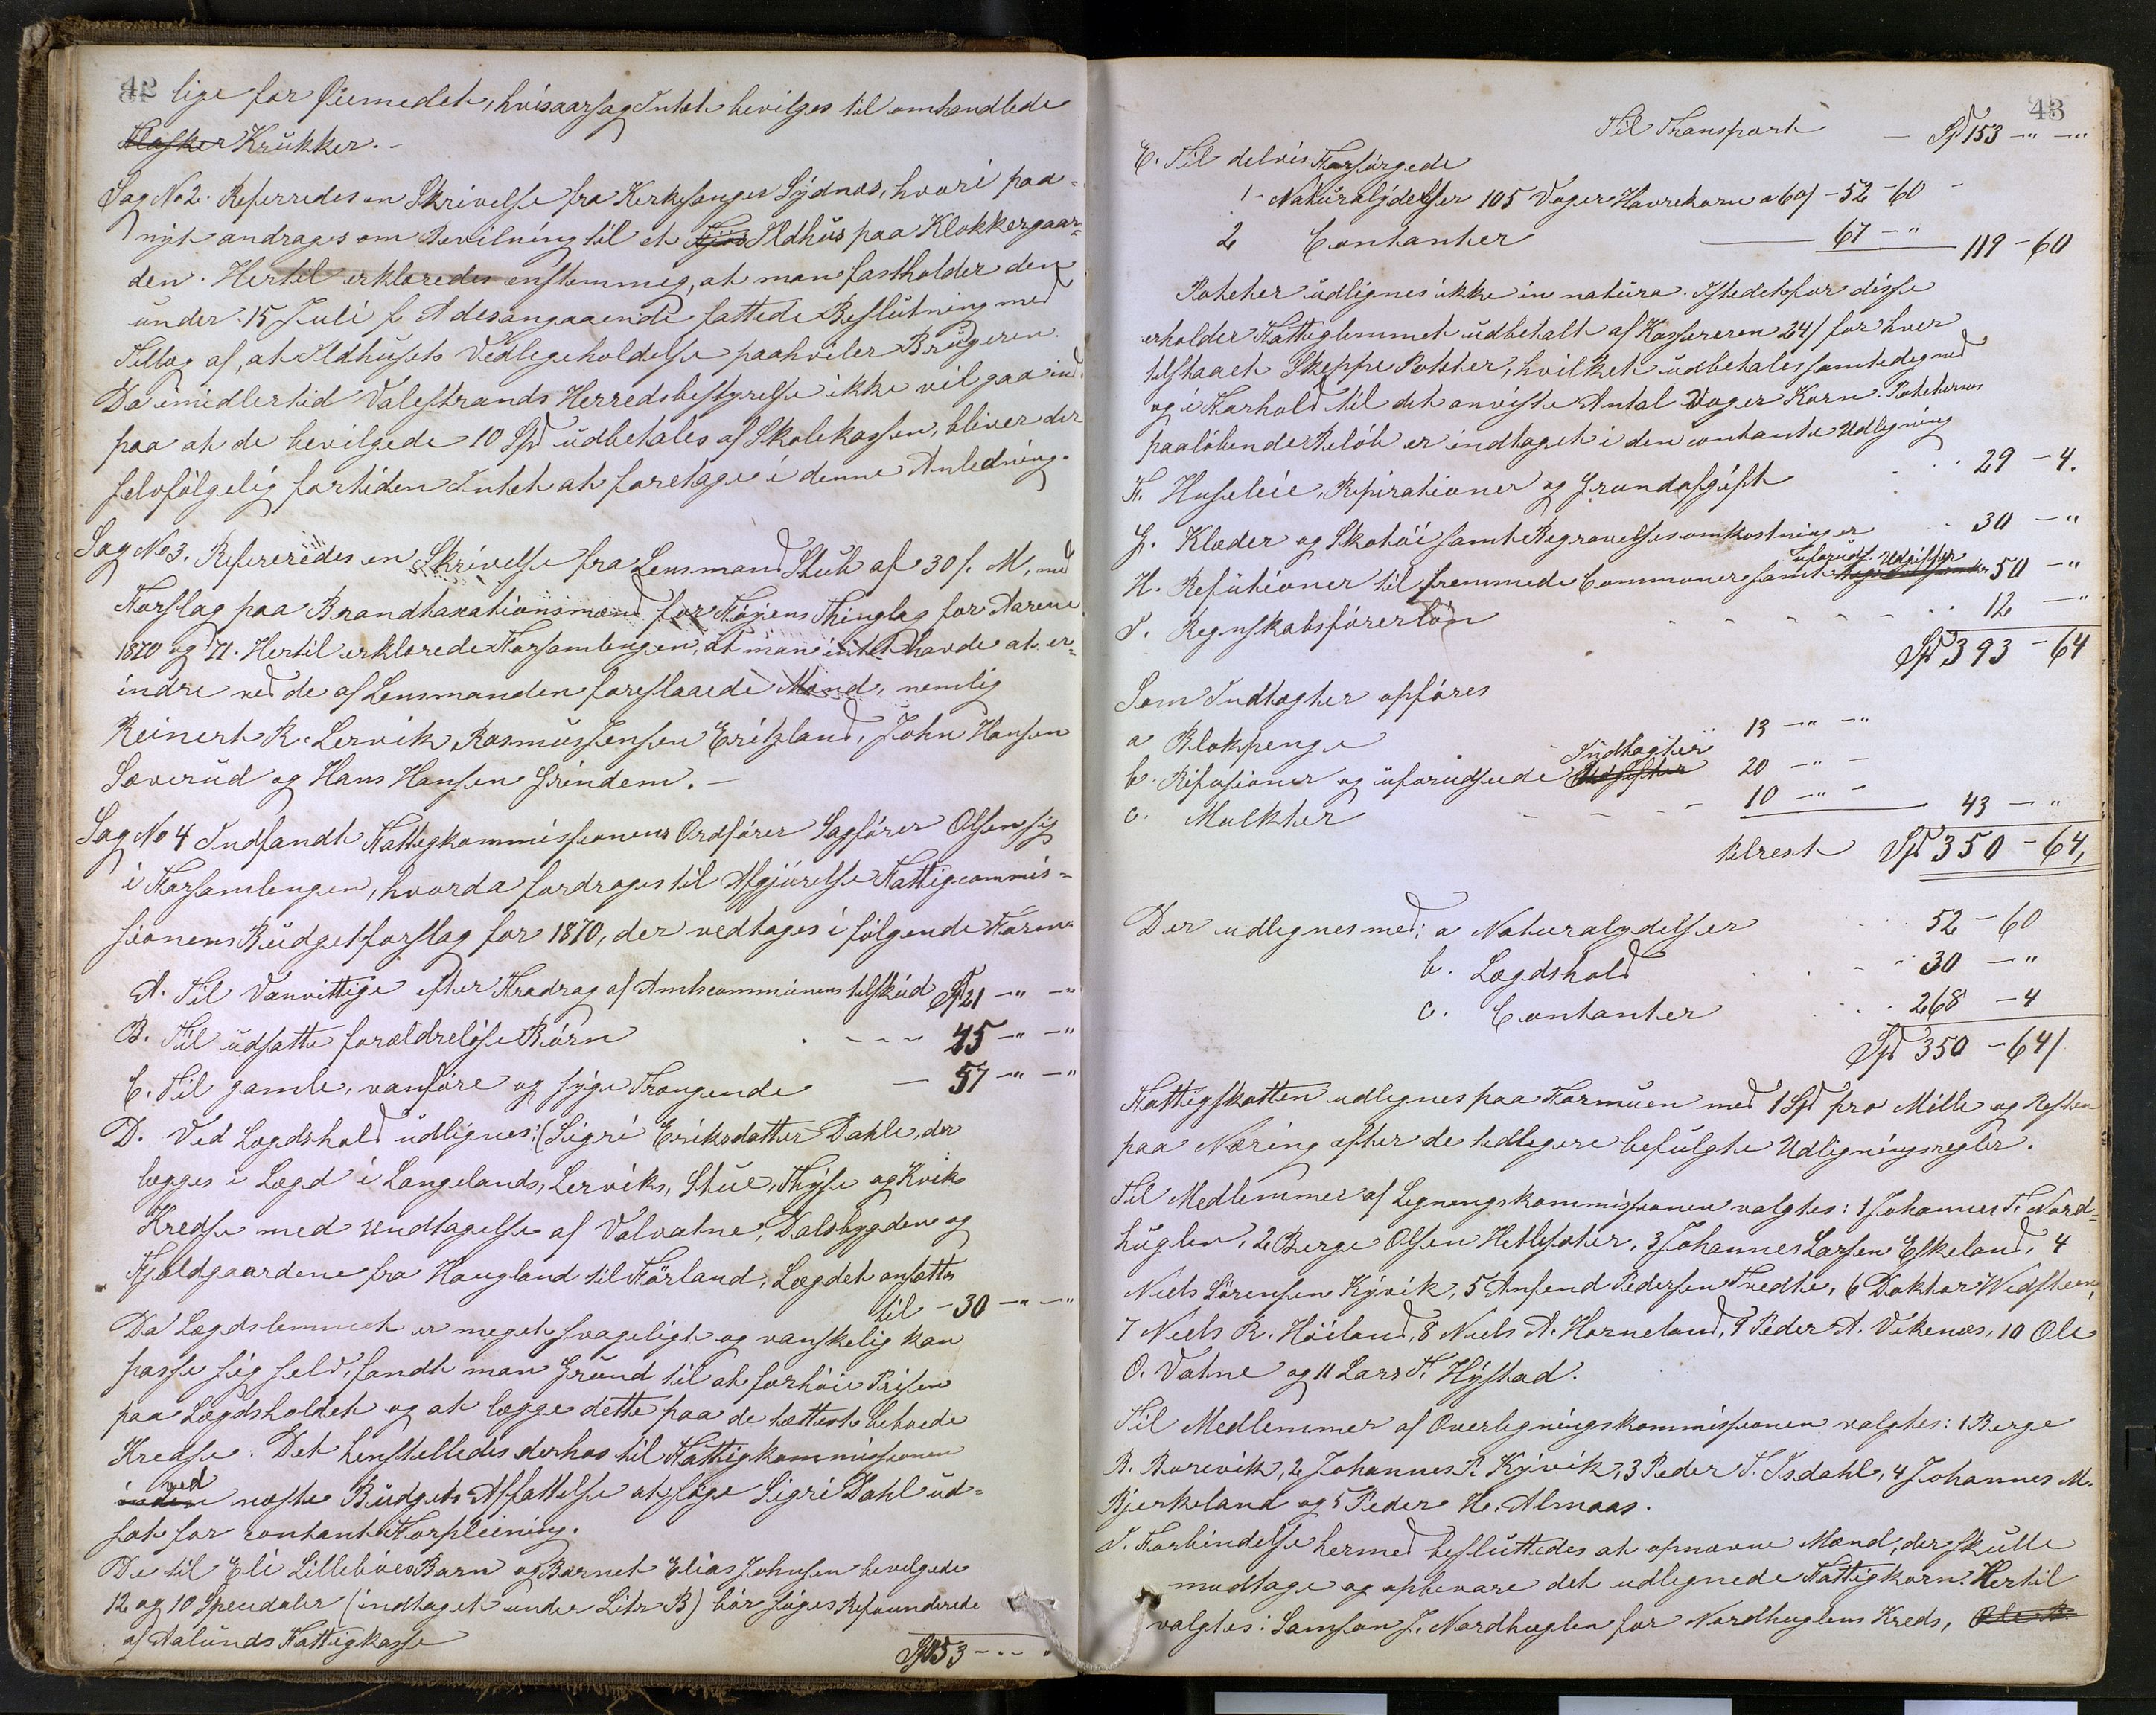 42
lige for Öiemedet, hvisaarsag Intet bevilges til omhandlede
Flasker Krukker. -
Sag No 2. Referredes en Skrivelse fra Kirkesanger Sydnæs, hvori paa-
nyt andrages om Bevilning til et Fjøs Ildhus paa Klokkergaar-
den. Hertil erklæredes enstemmig, at man fastholder den
under 15 Juli f. A desangaaende fattede Beslutning med
Tillæg af, at Ildhusets Vedligeholdelse paahviler Brugeren.
Da imidlertid Valestrands Herredsbestyrelse ikke vil gaa ind
paa at de bevilgede 10 Spd udbetales af Skolekassen, bliver der
selvfölgelig fortiden Intet at foretage i denne Anledning.
Sag No 3. Refereredes en Skrivelse fra Lensmand Stub af 30 f. M, med
Forslag paa Brandtaxationsmænd for Föiens Thinglag for Aarene
1870 og 71. Hertil erklærede Forsamlingen, at man intet havde at er-
indre ved de af Lensmanden foreslaaede Mænd, nemlig
Reinert R. Lervik, Rasmus Jensen Eritzland, John Hansen
Sæverud og Hans Hansen Grindem. -
Sag No 4 Indfandt Fattigkommissionens Ordförer Sagförer Olsen sig
i Forsamlingen, hvorda fordroges til Afgjörelse Fattigcommis-
sionens Budgetforslag for 1870, der vedtages i fölgende Form
A. Til Vanvittige efter Fradrag af Amtscommunens tilskud Spd 21 - " - "
B. Til udsatte forældrelöse Börn - - - 45 - " - "
C. Til gamle, vanföre og syge Trængende - 57 - " - "
D. Ved Lægdshold udlignes: (Sigri Eriksdatter Dahle, der
lægges i Lægd i Langelands, Lerviks, Stue, Thyse og Kviks
Kredse med Undtagelse af Valvatne, Dalsbygden og
Fjeldgaardene fra Haugland til Förland. Lægdet ansættes
til - 30 - " - "
Da Lægdslemmet er meget svageligt og vanskelig kan
passe sig selv, fandt man Grund til at forhöie Prisen
paa Lægdsholdet og at lægge dette paa de tættest beboede
Kredse. Det henstilledes derhos til Fattigkommissionen
inden ved næste Budgets Affattelse at söge Sigri Dahl ud-
sat for contant Forpleining.
De til Eli Lilleböes Barn og Barnet Elias Johnsen bevilgede
12 og 10 Speudaler (indtaget under Litr B) bör söges Refounderede
af Aalunds Fattigkasse
Spd 153 - " - "
43
Til Transport - Spd 153 - " - "
E. Til delvis Forsörgede
1 - Naturalydelser 105 Voger Havrekorn a 60 / - 52 - 60 -
2 Contanter 67 - " 119 - 60
Poteter udlignes ikke in natura. Istedetfor disse
erholder Fattiglemmet udbetalt af Kassereren 24 / for hver
tilstaaet Skeppe Poteter, hvilket udbetales samtidig med
og i Forhold til det anviste Antal Voger Korn. Poteternes
paalöbende Belöb er indtaget i den contante Udligning
F. Husleie, Repirationer og Grundafgift 29 - 4.
G. Klæder og Skotöi samt Begravelsesomkostninger 30 - "
H. Refutioner til fremmede Communer samt uforuds. Udgifter 50 - "
I. Regnskabsförerlön 12 - "
Spd 393 - 64
Som Indtægter opföres
a Blokpenge 13 - " - "
b. Refusioner og uforudseede Udgifter Indtægter 20 - " -
c. Mulkter 10 - " - 43 - "
Belrest Spd 350 - 64,
Der udlignes med: a Naturalydelser 52 - 60
b. Lægdshold 30 - "
c. Contanter 268 - 4
Spd 350 - 64 /
Fattigskatten udlignes paa Formuen med 1 Spd pro Mille og Resten
paa Næring efter de tidligere befulgte Udligningsregler.
Til Medlemmer af Ligningskommissionen valgtes: 1 Johannes T. Nord-
huglen, 2 Berge Olsen Hetlesæter, 3 Johannes Larsen Eskeland, 4
Niels Sörensen Kyvik, 5 Anfend Pedersen Tvedte, 6 Doktor Wedsteen,
7 Niels R. Höiland, 8 Niels A. Horneland, 9 Peder A. Vikenæs, 10 Ole
O. Vatne og 11 Lars T. Hystad.
Til Medlemmer af Overligningskommissionen valgtes: 1 Berge
B. Borevik, 2 Johannes P. Kyvik, 3 Peder T. Isdahl, 4 Johannes M.
Bjerkeland og 5 Peder H. Almaas.
I Forbindelse hermed besluttedes at opnævne Mænd, der skulle
modtage og opbevare det udlignede Fattigkorn. Hertil
valgtes: Samson J. Nordhuglen for Nordhuglens Kreds, Ole B.